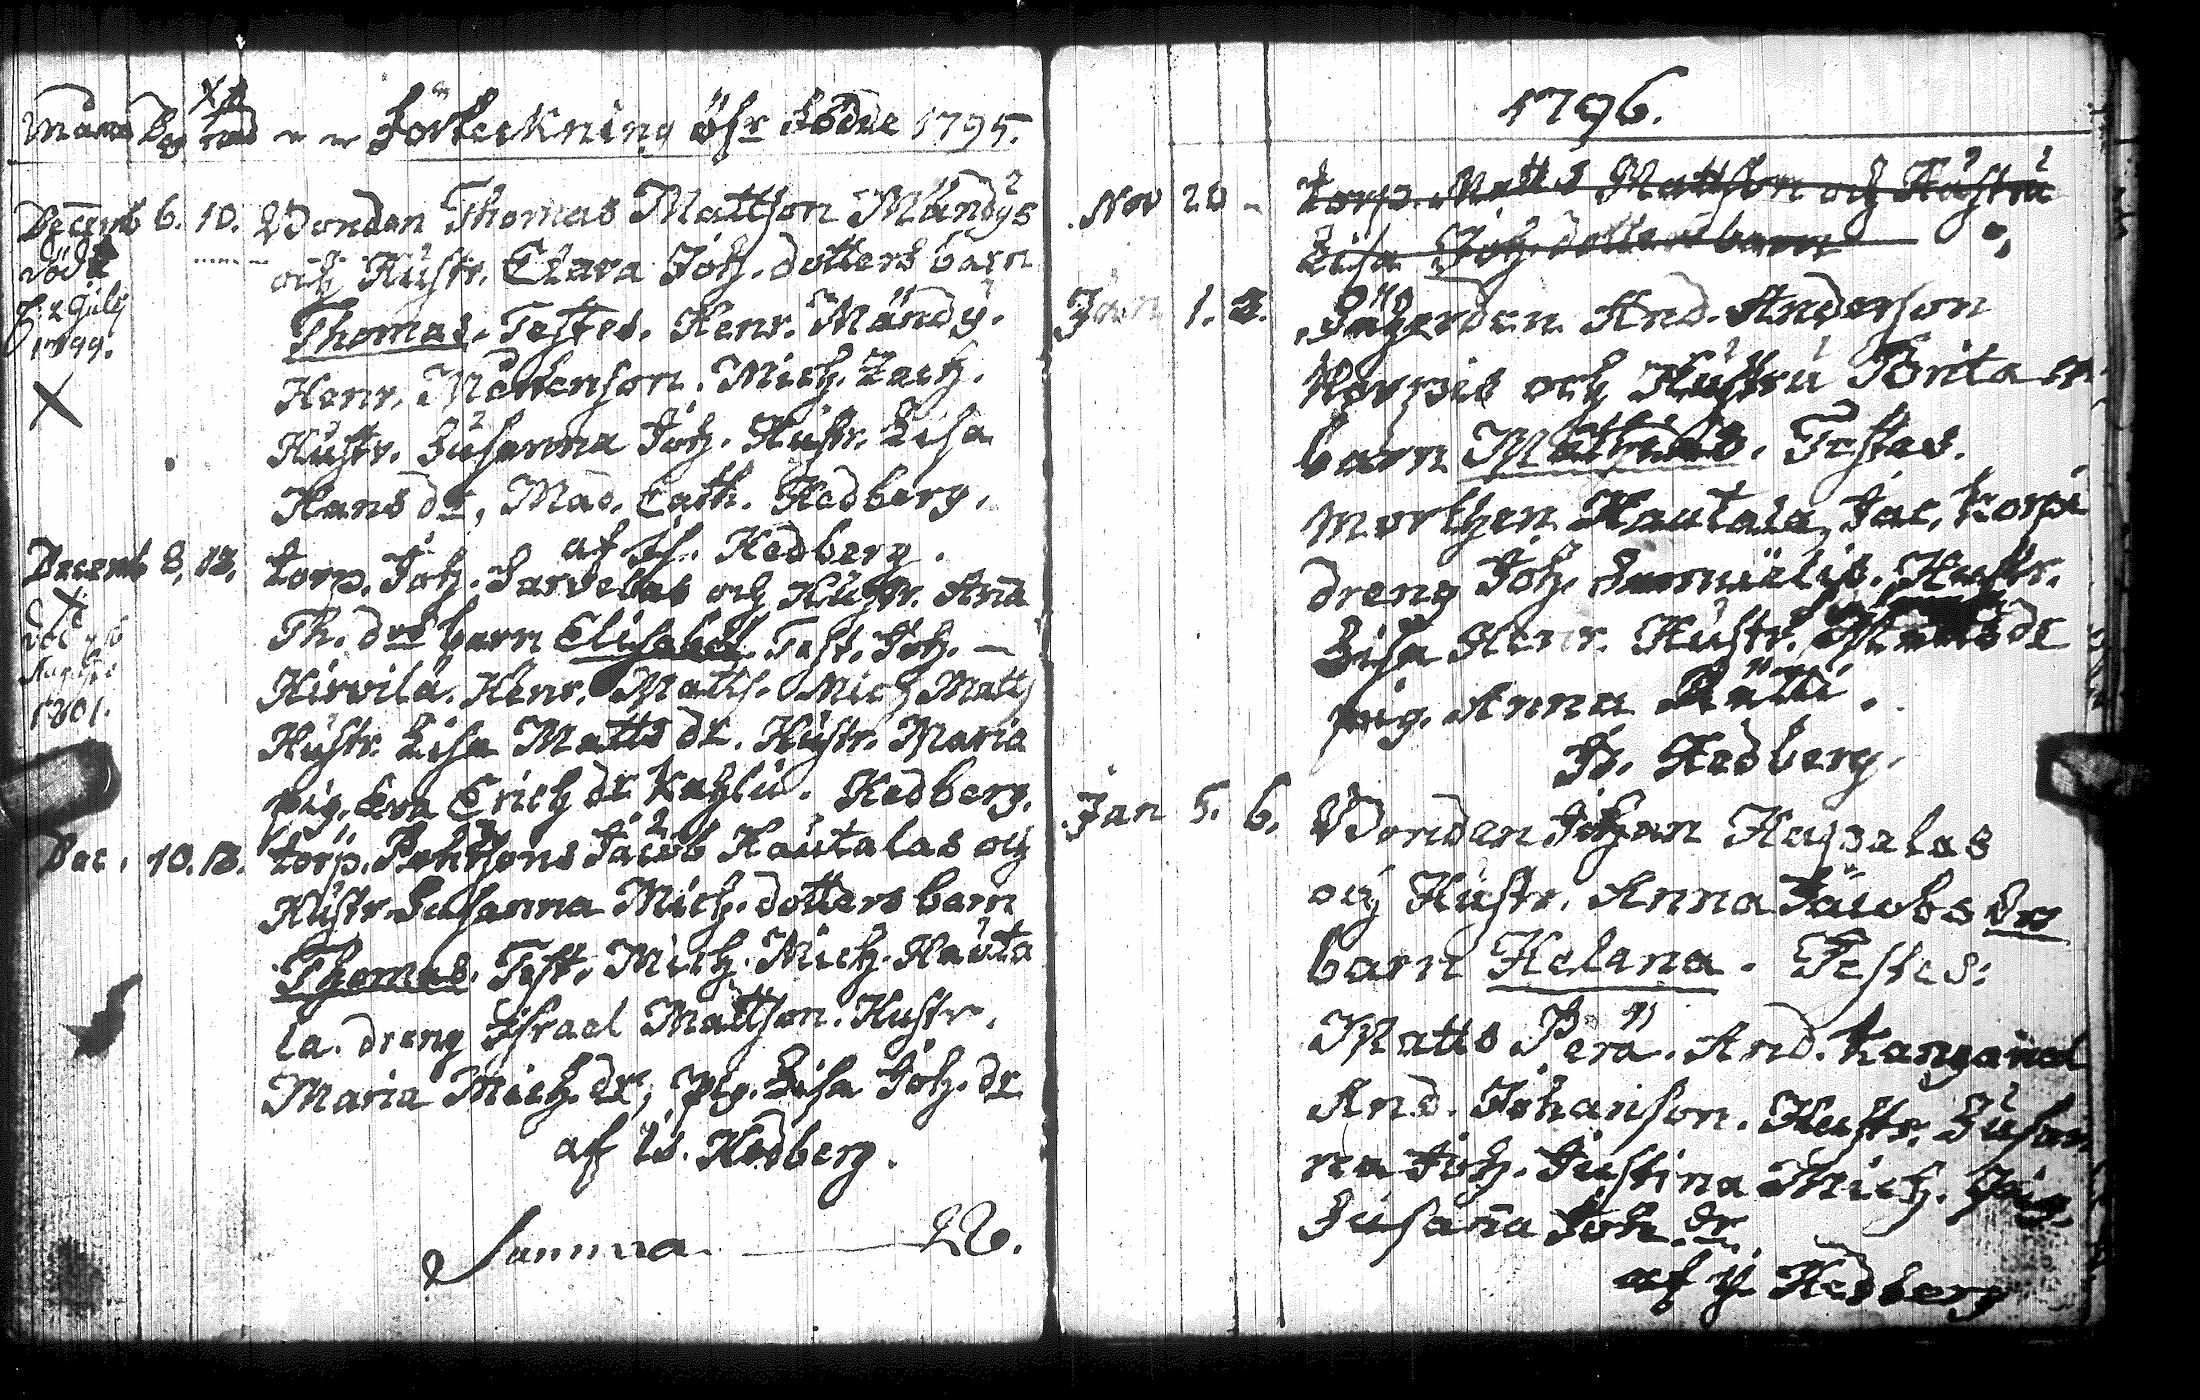 Förteckning öfr födde 1795.
Decemb 6. 10. Bonden Thomas Mattson Mändys
död
och Hustr. Clara Joh. dotters barn
d: 2 Julij
1799.
Thomas. Testes. Henr. Mändy.
Henr. Mårtenson. Mich. Zach.
Hustr. Susanna Joh. Hustr. Lisa
Hans dr, Mad. Cath. Hedberg.
af Hedberg.
Decemb 8. 13. torp. Joh. Sarvelas och Hustr. Aña
Th. drs barn Elisabet. Test. Joh. —
Hirvilä. Henr. Matts. Mich Matts
1801.
Hustr. Lisa Matts dr. Hustr. Maria
pig. Eva Erich dr Kahlu. Hedberg.
Dec. 10. 13. torp. Jacob Hautalas och
Hustr Susanna Mich. dotters barn
Thomas. Test. Mich. Mich. Hauta
la. dreng Israel Mattson. Hustr.
Maria Mich. dr, pig. Lisa Joh. dr
af Hedberg.
Summa. — 22.
1796.
Nov 20 torp. Matts Mattson och Hustru
Lisa Joh. dotters barn
Jan 1. 3. And. Anderson
och Hustru Brita
barn Mathias. Testes.
Morthen Hautala, Jac. Korpi
dreng Joh. Hustr.
Lisa Henr. Hustr.
pig. Anna
Hedberg.
Jan 5. 6. Bonden Johan Haapalas
och Hustr. Anna Jacobs dr
barn Helena. Testes:
Matts Perä. And. Kangand
And. Johanson. Hustr. Susan
na Joh. Justina Mich. Pig.
Susaña Joh. dr.
af Hedberg